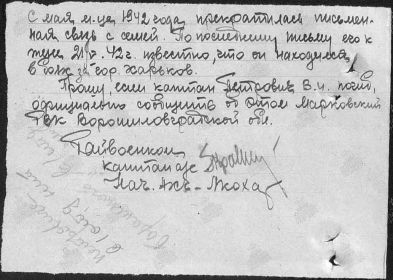 С мая м-ца 1942 года прекратилась письмен-
ная связь с семьей. По последнему письму его к
жене 21/V. 42г. известно, что он находился
в боях за гор. Харьков.
Прошу, если капитан Петрович В.И. погиб,
официально сообщить об этом Марковский
РВК Ворошиловградской обл.
Райвоенком
капитан а/с
Нач.